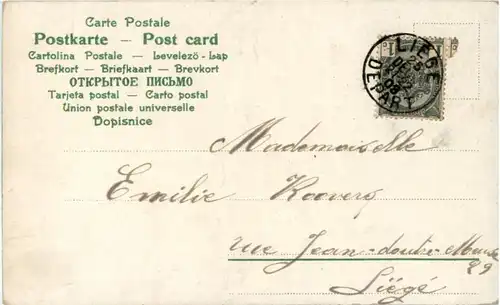 Carte Postale
Postkarte — Post card
Cartolina Postale — Levelező-Lap
Brefkort — Briefkaart — Brevkort
ОТКРЫТОЕ ПИСЬМО
Tarjeta postal — Carto postal
Union postale universelle
Dopisnice
LIÉGE
DÉPART
25
08
Mademoiselle
Emilie
rue Jean-d'outre-Meuse
29
Liégé